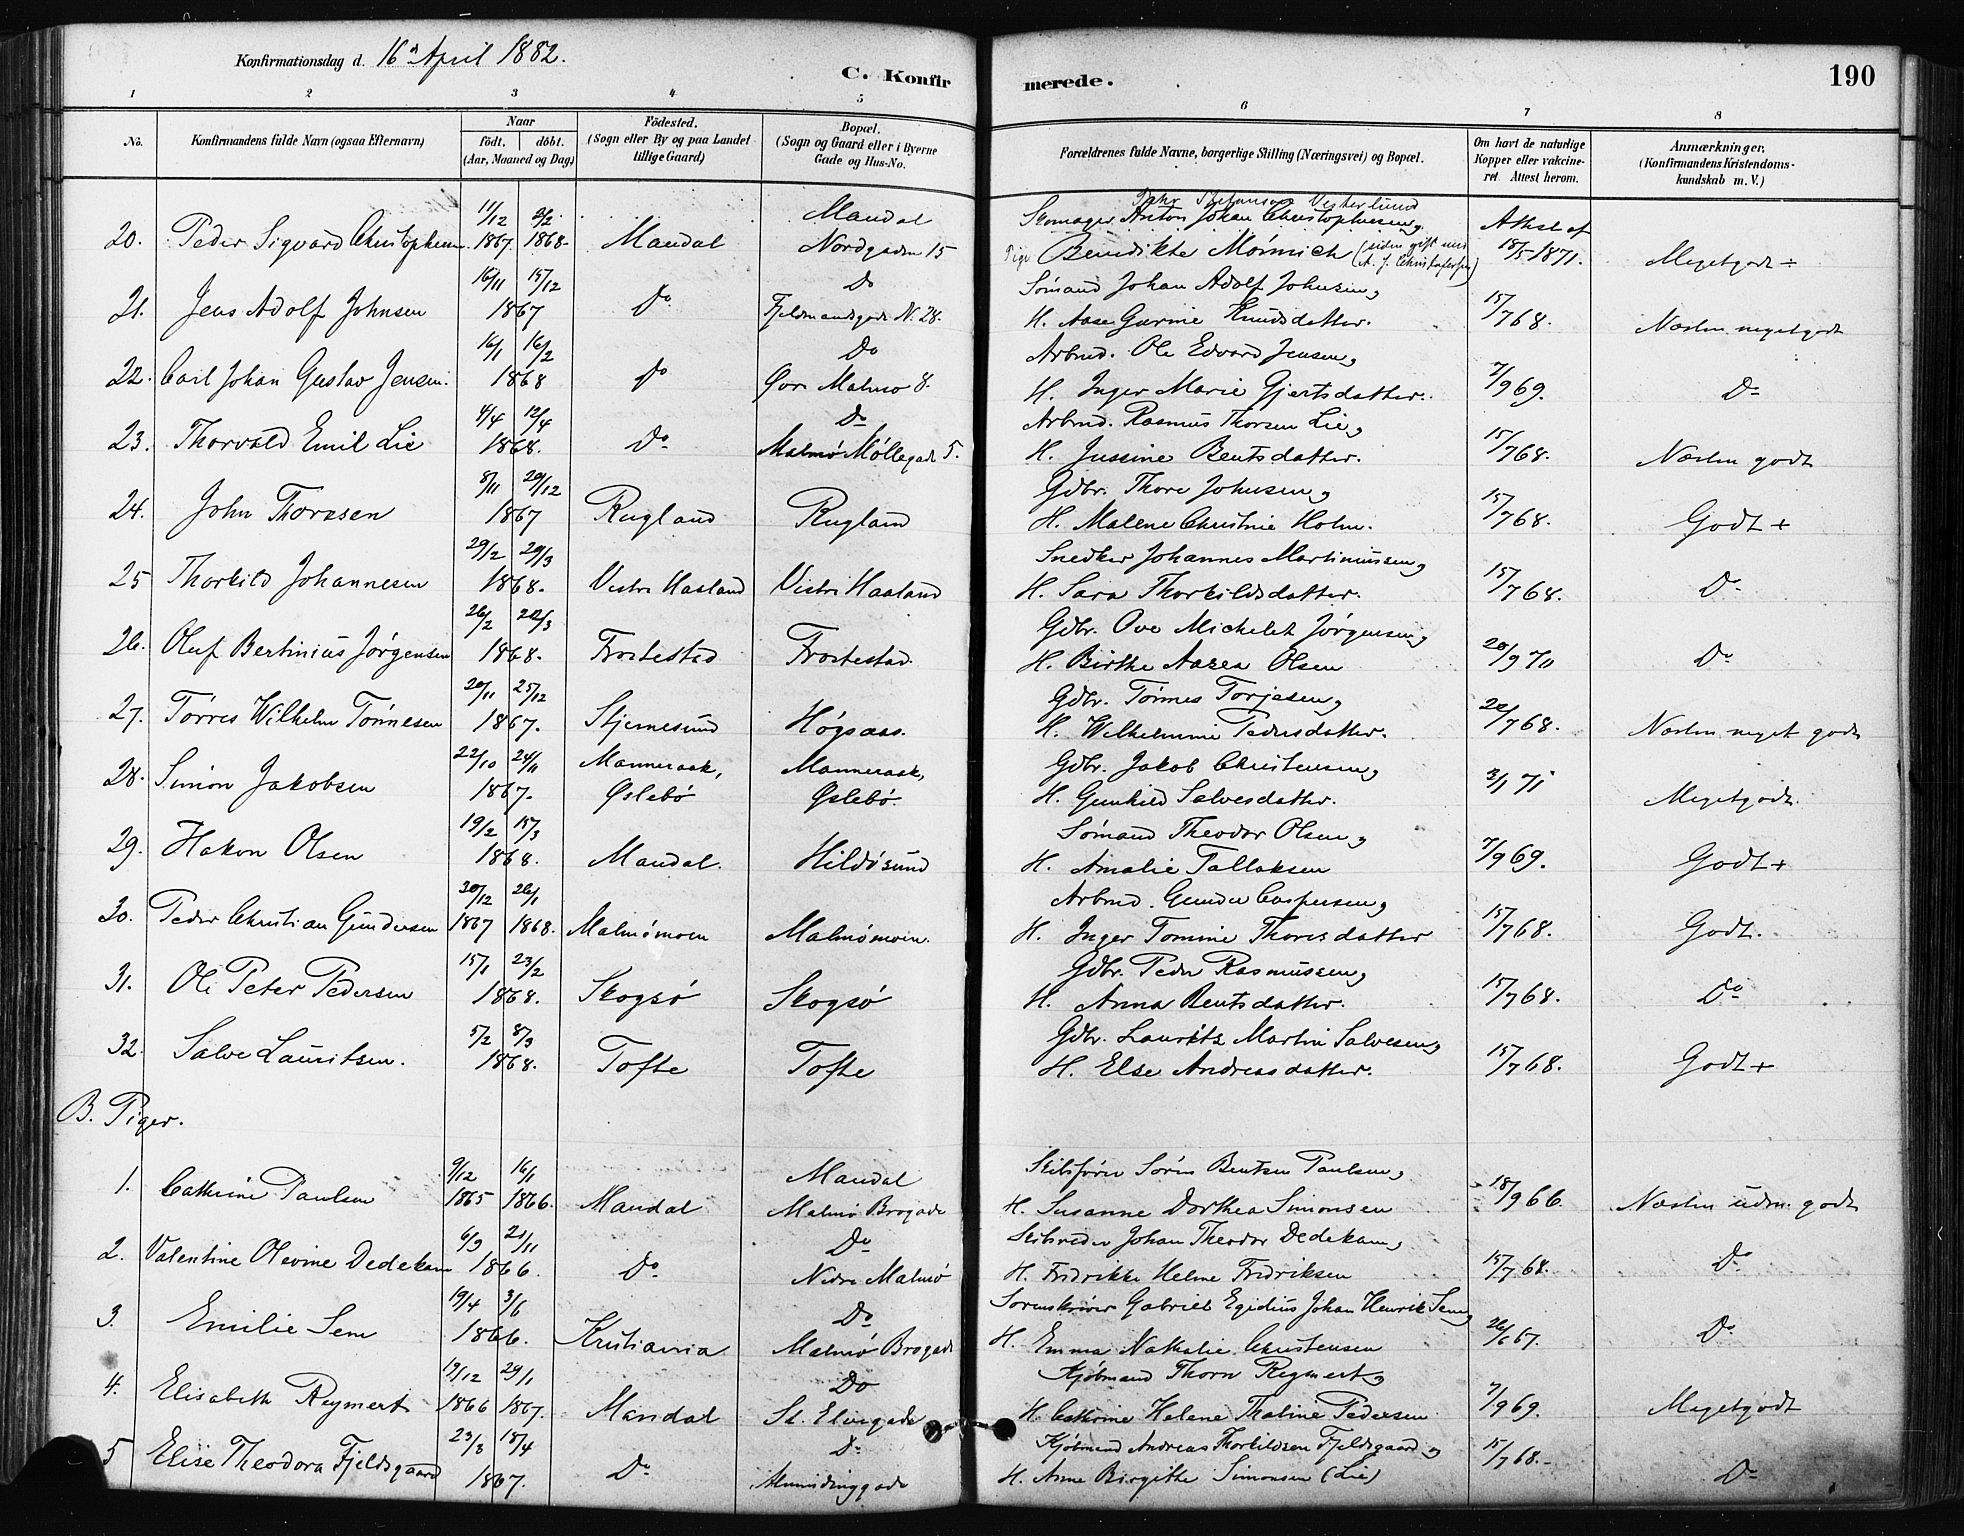 Konfirmationsdag d. 16d April 1882.
C. Konfirmerede.
190
1 2 3 4 5 6 7 8
No.
Konfirmandens fulde Navn (ogsaa Efternavn)
Naar
födt. döbt.
(Aar, Maaned og Dag)
Födested.
(Sogn eller By og paa Landet
tillige Gaard)
Bopæl.
(Sogn og Gaard eller i Byerne
Gade og Hus-No.
Forældrenes fulde Navne, borgerlige Stilling (Næringsvei) og Bopæl.
Om havt de naturlige
Kopper eller vakcine-
ret. Attest herom.
Anmærkninger.
(Konfirmandens Kristendoms-
kundskab m. V.)
11/12 2/2 Mandal Skomager Anton Johan Christophersen, Attest af
20. Peder Sigvard Christophersen 1867. 1868. Mandal Nordgaden 15 Pige Benedikte Mörnich (siden gift med A. J. Christofersen) 18/5 1871. Megetgodt ÷
16/11 15/12 Do Sömand Johan Adolf Johnsen,
21. Jens Adolf Johnsen 1867 Do Fjeldmandsgade N. 28. H. Aase Gurine Knudsdatter. 15/7 68. Næsten megetgodt
16/1 16/2 Do Arbmd. Ole Edvard Jensen,
22. Carl Johan Gustav Jensen. 1868 Do Övre Malmö 8. H. Inger Marie Gjertsdatter. 7/9 69. Do
4/4 12/4 Do Arbmd. Rasmus Thorsen Lie,
23. Thorvald Emil Lie 1868. Do Malmö Möllegade 5. H. Jussine Bentsdatter. 15/7 68. Næsten godt
8/11 29/12 Gdbr. Thore Johnsen,
24. John Thoresen 1867 Rugland Rugland H. Malene Christine Holm. 15/7 68. Godt +
29/2 29/3 Snedker Johannes Martinussen,
25 Thorkild Johannesen 1868. Vestre Haaland Vestre Haaland H. Sara Thorkildsdatter. 15/7 68. Do
26/2 22/3 Gdbr. Ove Michelet Jörgensen,
26. Oluf Bertinius Jörgensen 1868. Frostestad Frostestad. H. Birthe Aasea Olsen 20/9 70 Do
20/11 25/12 Gdbr. Tönnes Torjesen,
27. Törres Wilhelm Tönnesen 1867. Stjernesund Högsaas. H. Wilhelmine Pedersdatter. 22/7 68. Næsten meget godt
22/10 24/11 Manneraak, Manneraak, Gdbr. Jakob Christensen,
28. Simon Jakobsen 1867. Öslebö Öslebö H. Gunhild Salvesdatter. 3/1 71 Megetgodt.
19/2 15/3 Sömand Theodor Olsen,
29. Hakon Olsen 1868. Mandal. Hildösund H. Amalie Tallaksen 7/9 69. Godt +
30/12 26/1 Arbmd. Gunder Caspersen,
30. Peder Christian Gundersen 1867 1868. Malmömoen Malmömoen. H. Inger Tomine Thoresdatter 15/7 68. Godt.
15/1 23/2 Gdbr. Peder Rasmussen,
31. Ole Peter Pedersen 1868. Skogsö Skogsö H. Anna Bentsdatter. 15/7 68. Do
5/2 8/3 Gdbr. Lauritz Martin Salvesen,
32. Salve Lauritsen. 1868. Tofte Tofte H. Else Andreasdatter. 15/7 68. Godt +
B. Piger.
9/12 16/1 Mandal Skibsförer Sören Bentsen Paulsen,
1. Cathrine Paulsen 1865 1866. Mandal Malmö Brogade H. Susanne Dorthea Simonsen 18/9 66. Næsten udm. godt
6/9 21/11 Do Skibsreder Johan Theodor Dedekam,
2. Valentine Olevine Dedekam 1866. Do Nedre Malmö H. Fredrikke Helene Fredriksen 15/7 68. Do
19/4 3/6 Do Sorenskriver Gabriel Egidius Johan Henrik Sem,
3. Emilie Sem 1866. Kristiania Malmö Brogade H. Emma Nathalie Christensen 26/6 67. Do
19/12 29/1 Do Kjöbmand Thorn Reymert,
4. Elisabeth Reymert 1866 1867. Mandal St. Elvegade H. Cathrine Helene Thaline Pedersen 7/9 69. Megetgodt
23/3 15/4 Do Kjöbmand Andreas Thorkildsen Fjeldsgaard,
5 Elise Theodora Fjeldsgaard 1867. Do Almindinggade H. Anne Birgithe Simonsen (Lie) 15/7 68. Do